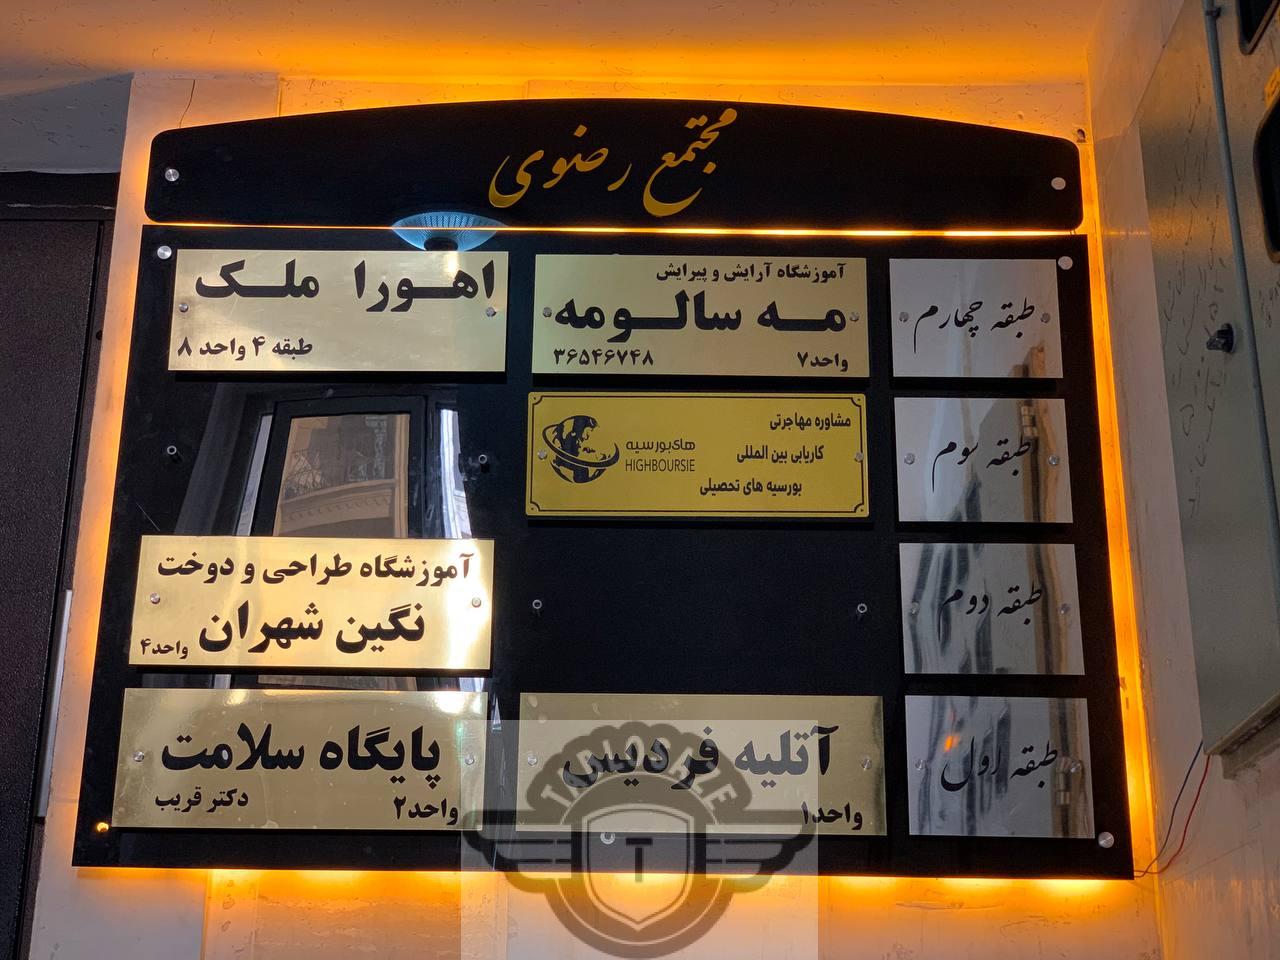 مجتمع رضوی
طبقه چهارم
آموزشگاه آرایش و پیرایش
مه سالومه
واحد۷
۳۶۵۴۶۷۴۸
اهورا ملک
طبقه ۴ واحد ۸
طبقه سوم
مشاوره مهاجرتی
کاریابی بین المللی
بورسیه های تحصیلی
های‌بورسیه
HIGHBOURSIE
طبقه دوم
آموزشگاه طراحی و دوخت
نگین شهران
واحد۴
طبقه اول
آتلیه فردیس
واحد۱
پایگاه سلامت
واحد۲
دکتر قریب
T